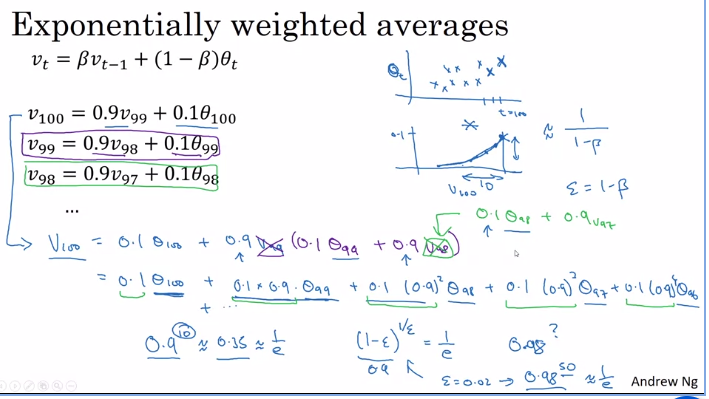 Exponentially weighted averages
v_t = βv_{t−1} + (1 − β)θ_t
θ_t
t=100
v_100 = 0.9v_99 + 0.1θ_100
v_99 = 0.9v_98 + 0.1θ_99
v_98 = 0.9v_97 + 0.1θ_98
...
0.1
V_100
10
≈ 1/(1−β)
ε = 1−β
0.1 θ_98 + 0.9 v_97
V_100 = 0.1 θ_100 + 0.9 v_99 (0.1 θ_99 + 0.9 v_98)
= 0.1 θ_100 + 0.1 × 0.9 · θ_99 + 0.1 (0.9)^2 θ_98 + 0.1 (0.9)^3 θ_97 + 0.1 (0.9)^4 θ_96
+ ...
0.9^10 ≈ 0.35 ≈ 1/e
(1−ε)^{1/ε} = 1/e
0.9
0.98 ?
ε = 0.02 → 0.98^50 ≈ 1/e
Andrew Ng